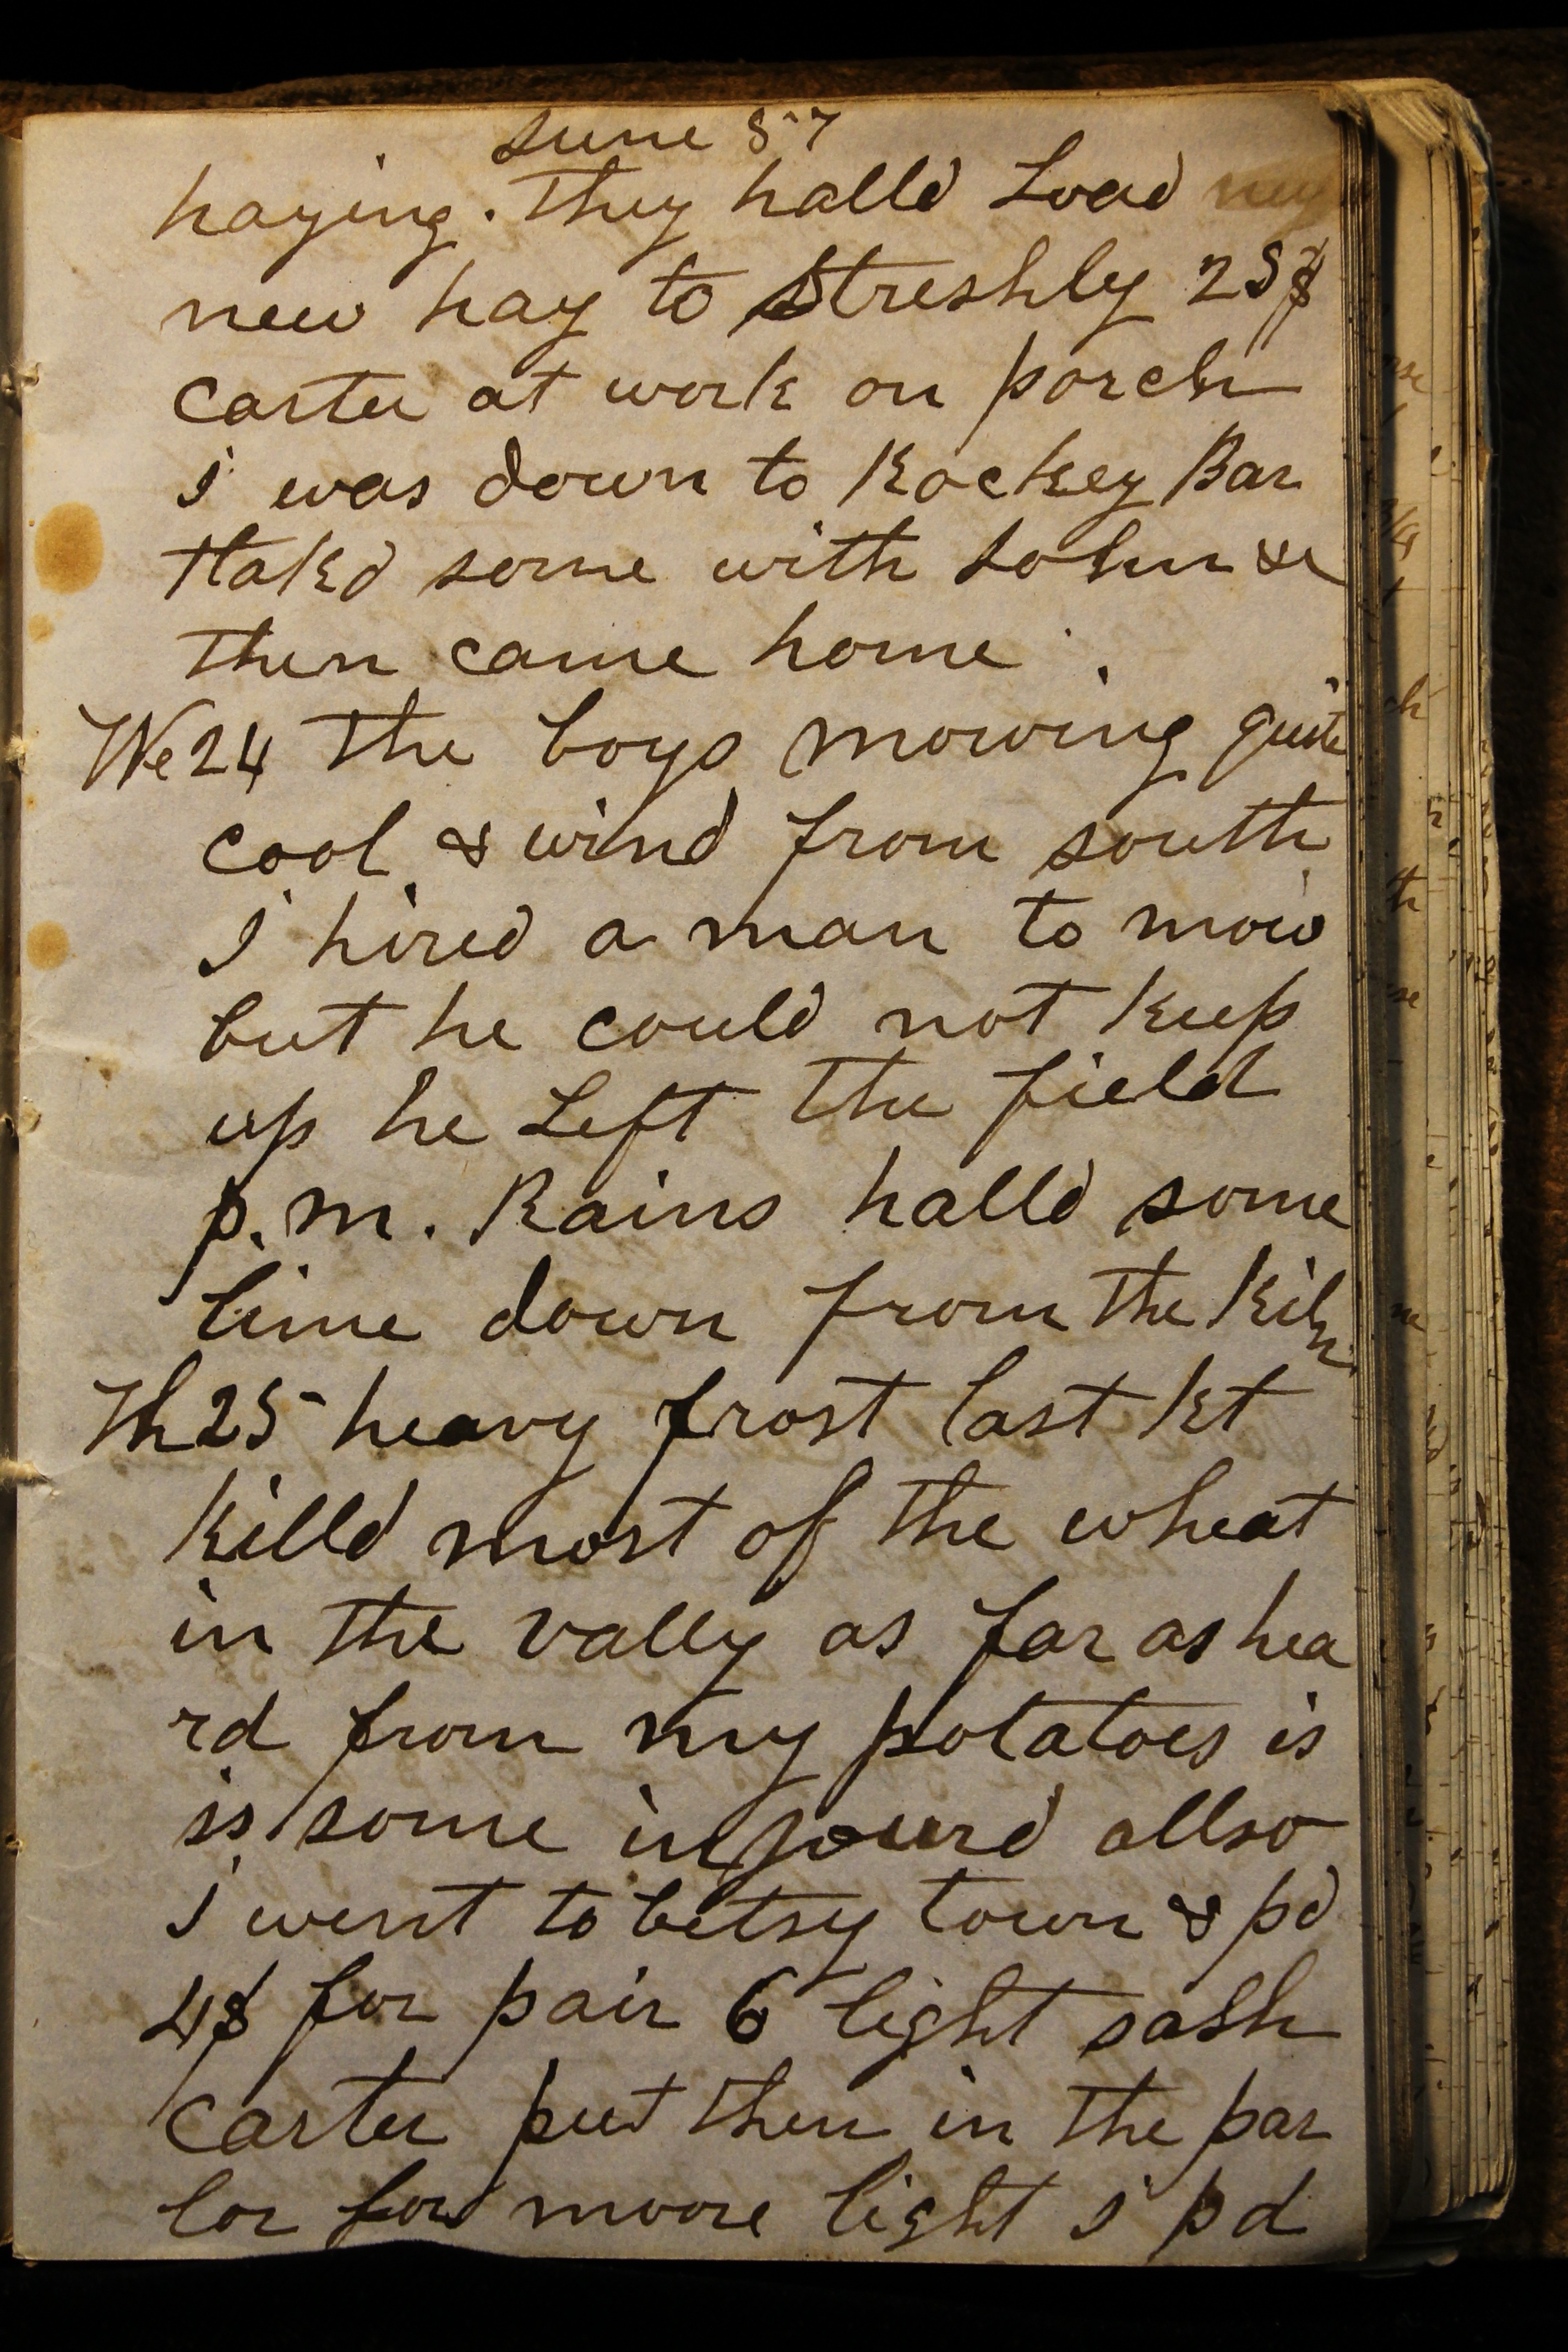 June 57
haying. They halld Load
new hay to Streshly 25$
Carter at work on porch
i was down to Rockey Bar
tlakd some with John &
then came home.
We 24 the boys mowing quite
cool & wind from south
I hired a man to mow
but he could not keep
up he Left the field
p.m. Rains halld some
lime down from the Kiln
Th 25 heavy frost last
killd most of the wheat
in the vally as far as hea
rd from my potatoes is
is some injourd allso
i went to betsy town & pd
4$ for pair 6 light sash
Carter put them in the par
lor for moore light i pd